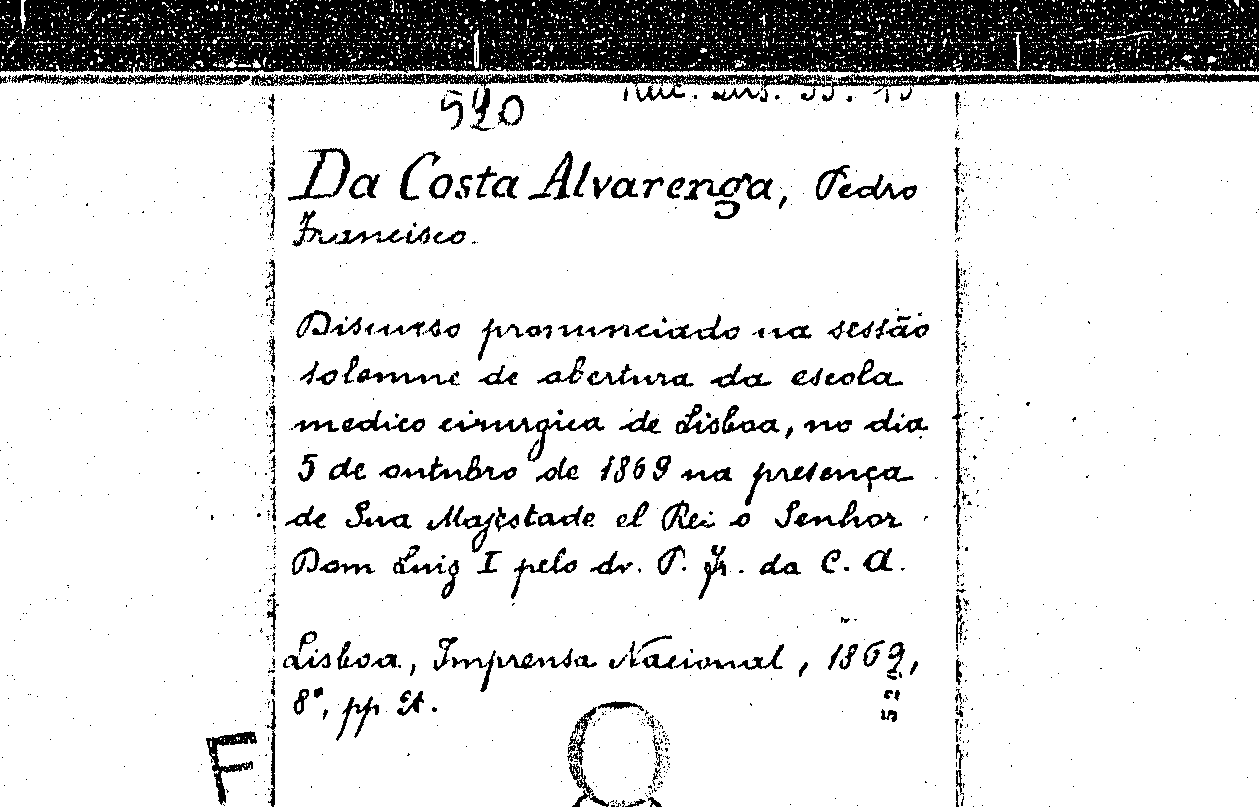 520
Da Costa Alvarenga, Pedro
Francisco.
Discurso pronunciado na sessão
solemne de abertura da escola
medico cirurgica de Lisboa, no dia
5 de outubro de 1869 na presença
de Sua Majestade el Rei o Senhor
Dom Luiz I pelo dr. P. Fr. da C. A.
Lisboa, Imprensa Nacional, 1869,
8°, pp
F